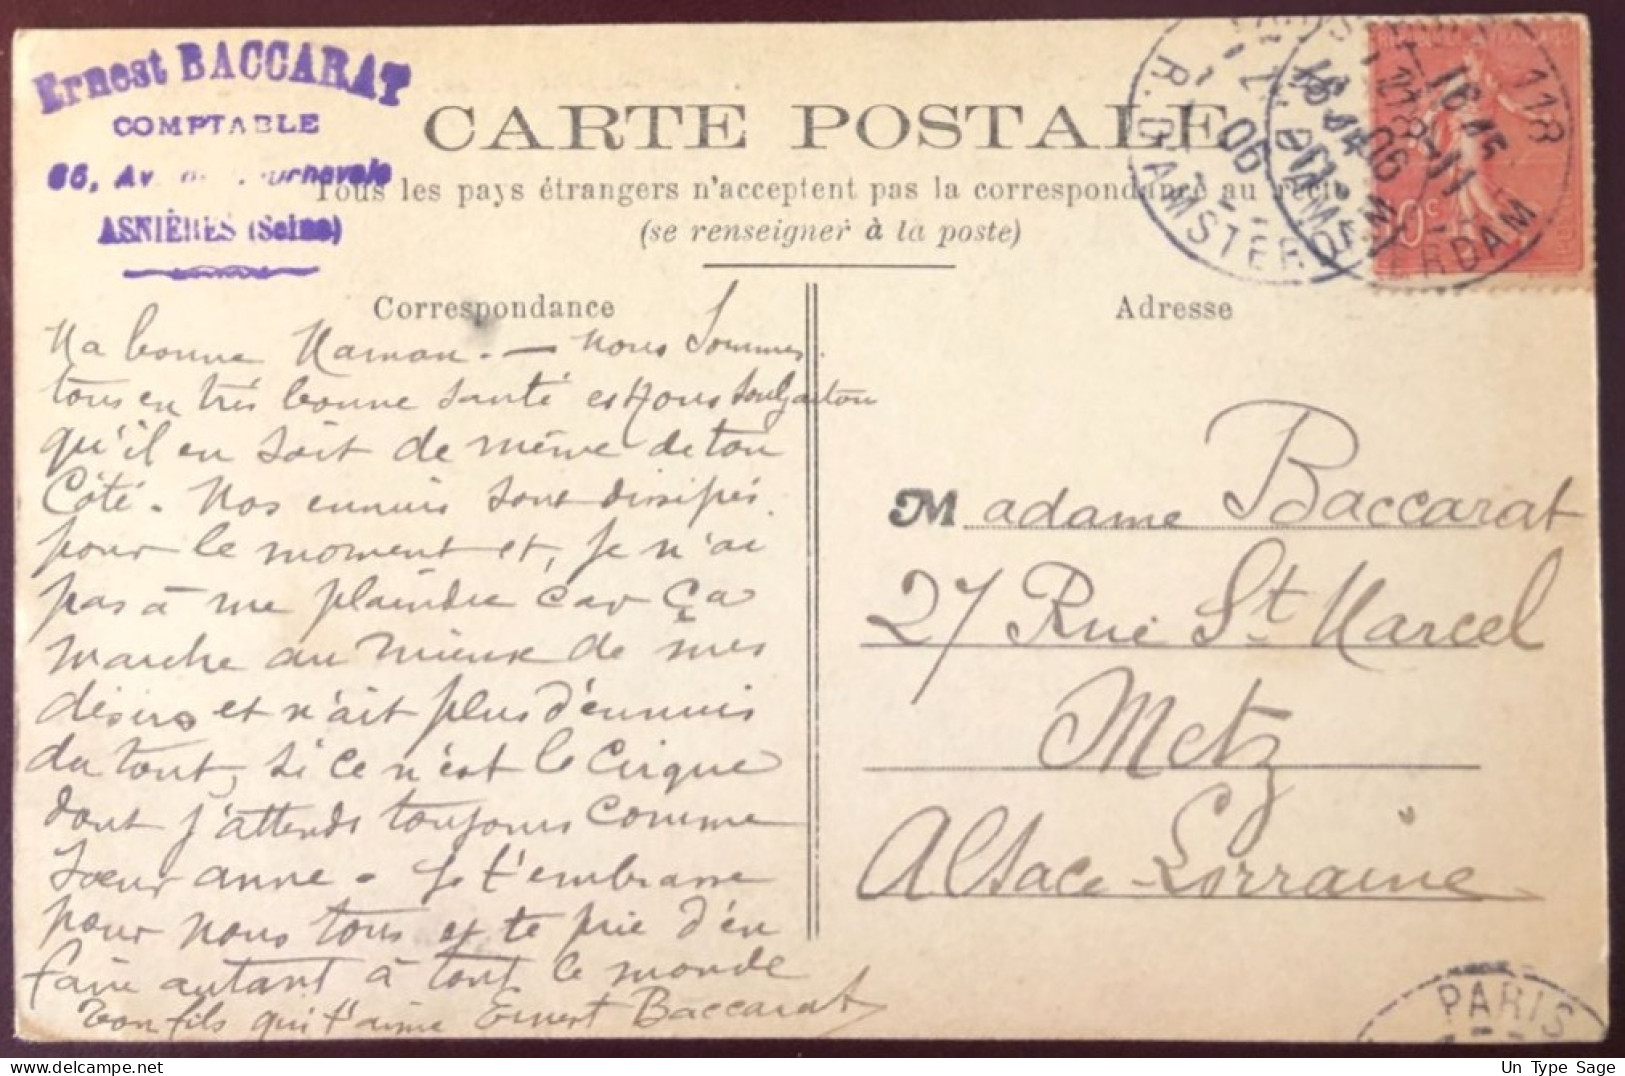 Ernest BACCARAT
COMPTABLE
66, Av.
ASNIÈRES (Seine)
CARTE POSTALE
Tous les pays étrangers n'acceptent pas la correspondance au recto
(se renseigner à la poste)
Correspondance
Ma bonne Maman. — Nous Sommes
tous en très bonne santé et
qu'il en soit de même de ton
Côté. Nos ennuis sont dissipés
pour le moment et, je n'ai
pas à me plaindre car ça
marche au mieux de mes
désirs et n'ait plus d'ennuis
du tout, si ce n'est le Cirque
dont j'attends toujours comme
Sœur anne. Je t'embrasse
pour nous tous et te prie d'en
faire autant à tout le monde
Ton fils qui t'aime Ernest Baccarat
Adresse
Madame Baccarat
27 Rue St Marcel
Metz
Alsace-Lorraine
118
16 45
06
R. D'AMSTERDAM
PARIS
Un Type Sage